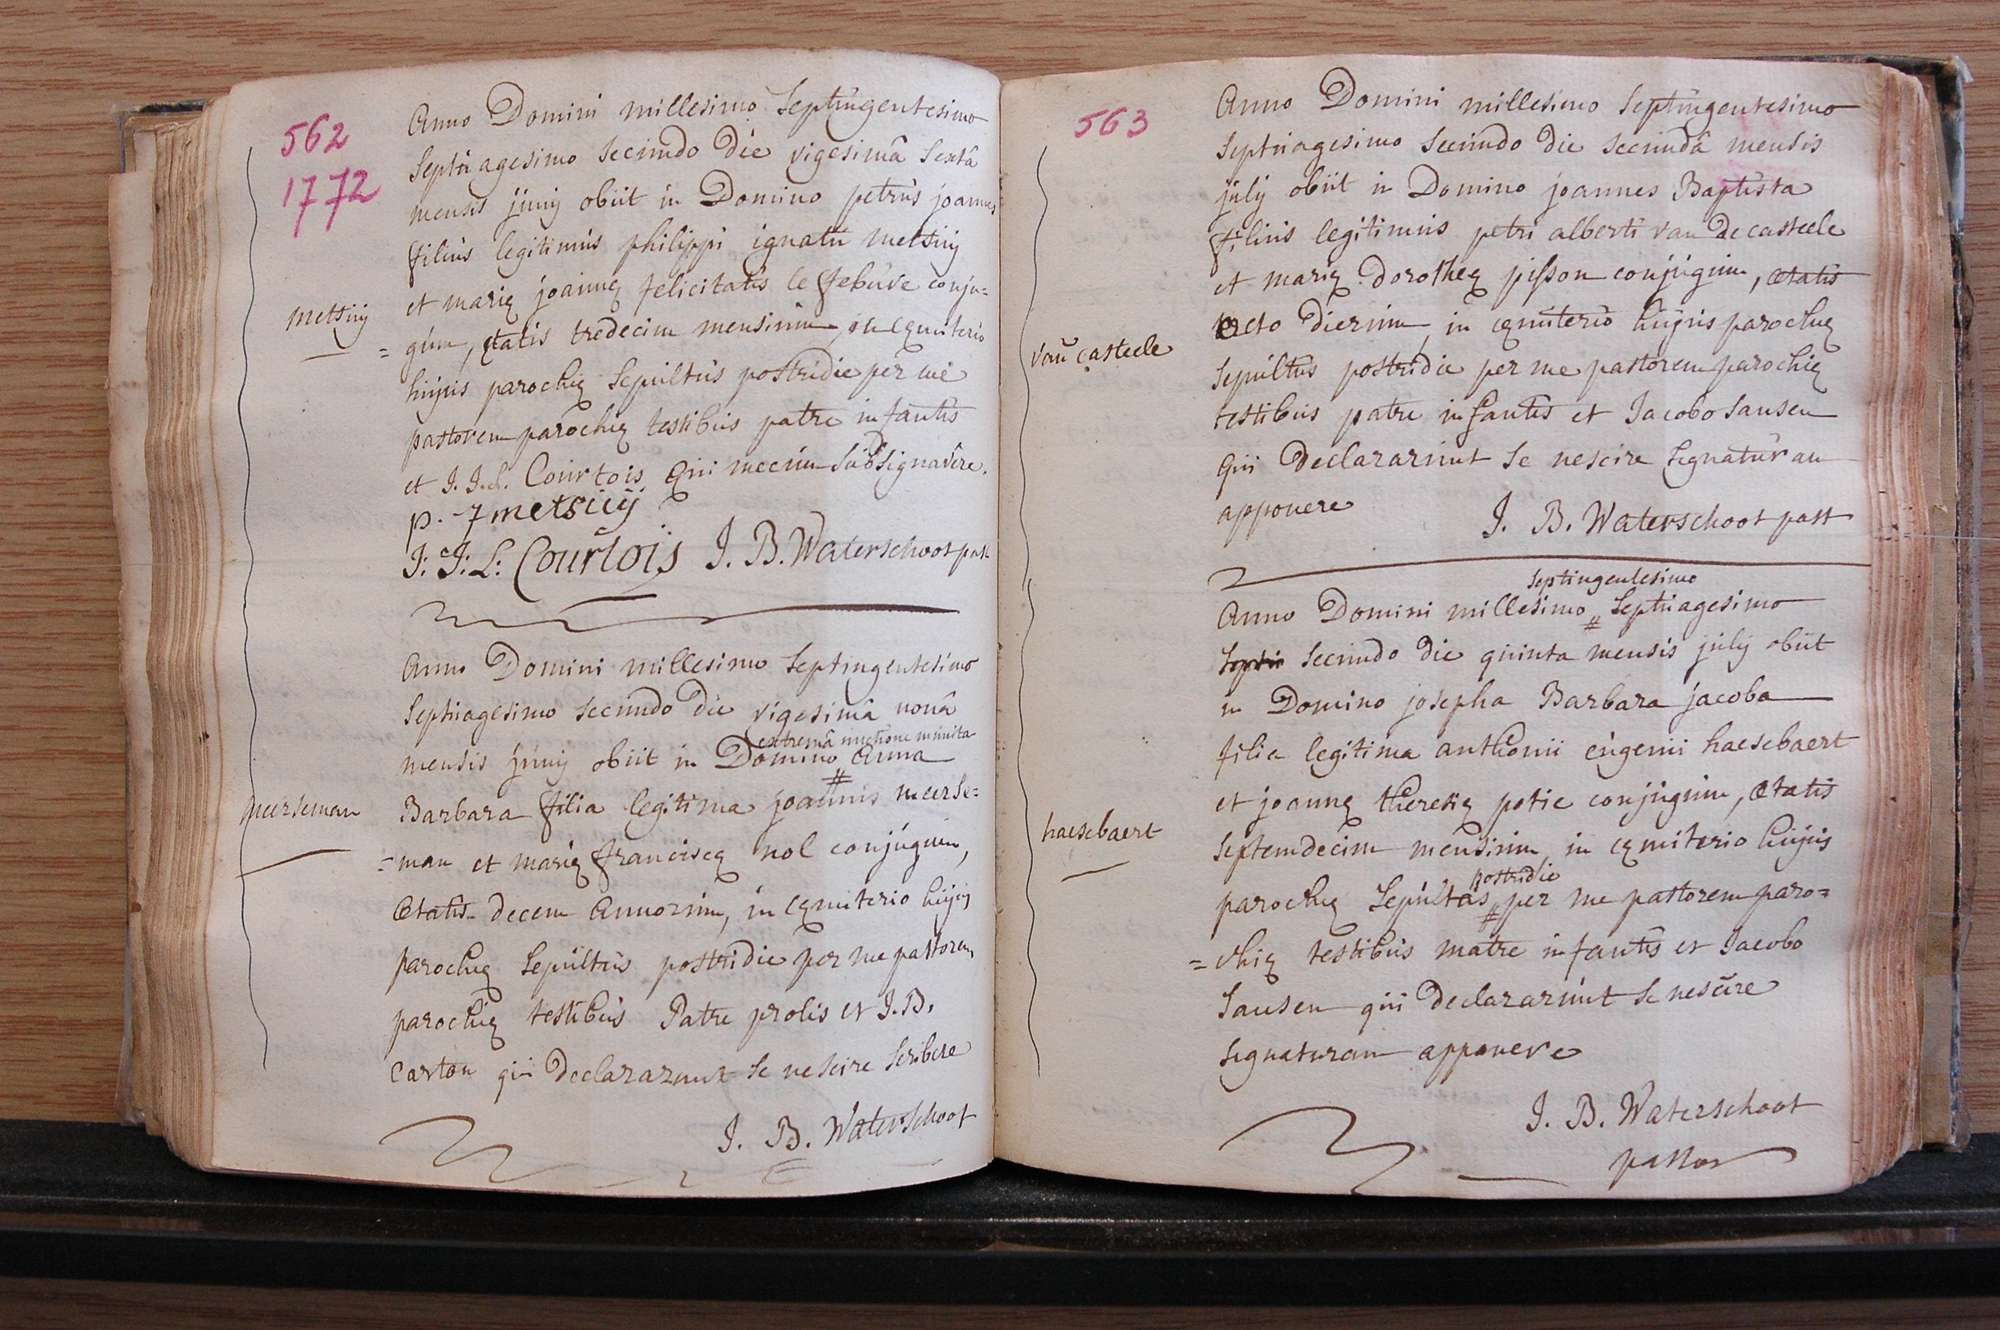 562
1772
Anno Domini millesimo Septingentesimo
Septuagesimo Secundo die vigesimâ Sextâ
mensis junij obiit in Domino petrus joannes
filius legitimus philippi ignatii metsuij
et marię joannę felicitatis le febuve conju=
=gum, ętatis tredecim mensium, in cęmiterio
hujus parochię Sepultus postridie per me
pastorem parochię testibus patre infantis
et J. J. L. Courtois qui mecum subsignavere.
p. J metsuij
J: J: L: Courtois J. B. Waterschoot past
metsuij
Anno Domini millesimo Septingentesimo
Septuagesimo Secundo die vigesimâ nonâ
extremâ unctione munita
mensis junij obiit in Domino # Anna
Barbara filia legitima joannis meerse=
=man et marię franciscę nol conjugum,
Ætatis decem Annorum, in cęmiterio hujus
parochię Sepultus postridie per me pastorem
parochię testibus Patre prolis et J. B.
Carton qui declararunt se nescire scribere
J. B. Waterschoot
meerseman
563
Anno Domini millesimo Septingentesimo
Septuagesimo Secundo die Secundâ mensis
july obiit in Domino joannes Baptista
filius legitimus petri alberti van de casteele
et marię dorotheę pisson conjugum, Ætatis
octo dierum, in cęmiterio hujus parochię
Sepultus postridie per me pastorem parochię
testibus patre infantis et Jacobo Sansen
qui declararunt se nescire Signaturam
apponere
J. B. Waterschoot past
van casteele
septingentesimo
Anno Domini millesimo # Septuagesimo
Septu Secundo die quinta mensis july obiit
in Domino josepha Barbara jacoba
filia legitima anthonii eugenii haesebaert
et joannę theresię potie conjugum, Ætatis
Septemdecim mensium in cęmiterio hujus
postridie
parochię Sepultas # per me pastorem paro=
=chię testibus matre infantis et Jacobo
Sansen qui declararunt se nescire
Signaturam apponere
J. B. Waterschoot
pastor
haesebaert